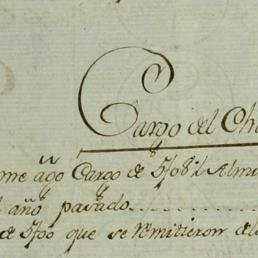 Cargo del Ch
me ago Cargo de 5708 Almu
año pasado
de 5700 que se remitieron de